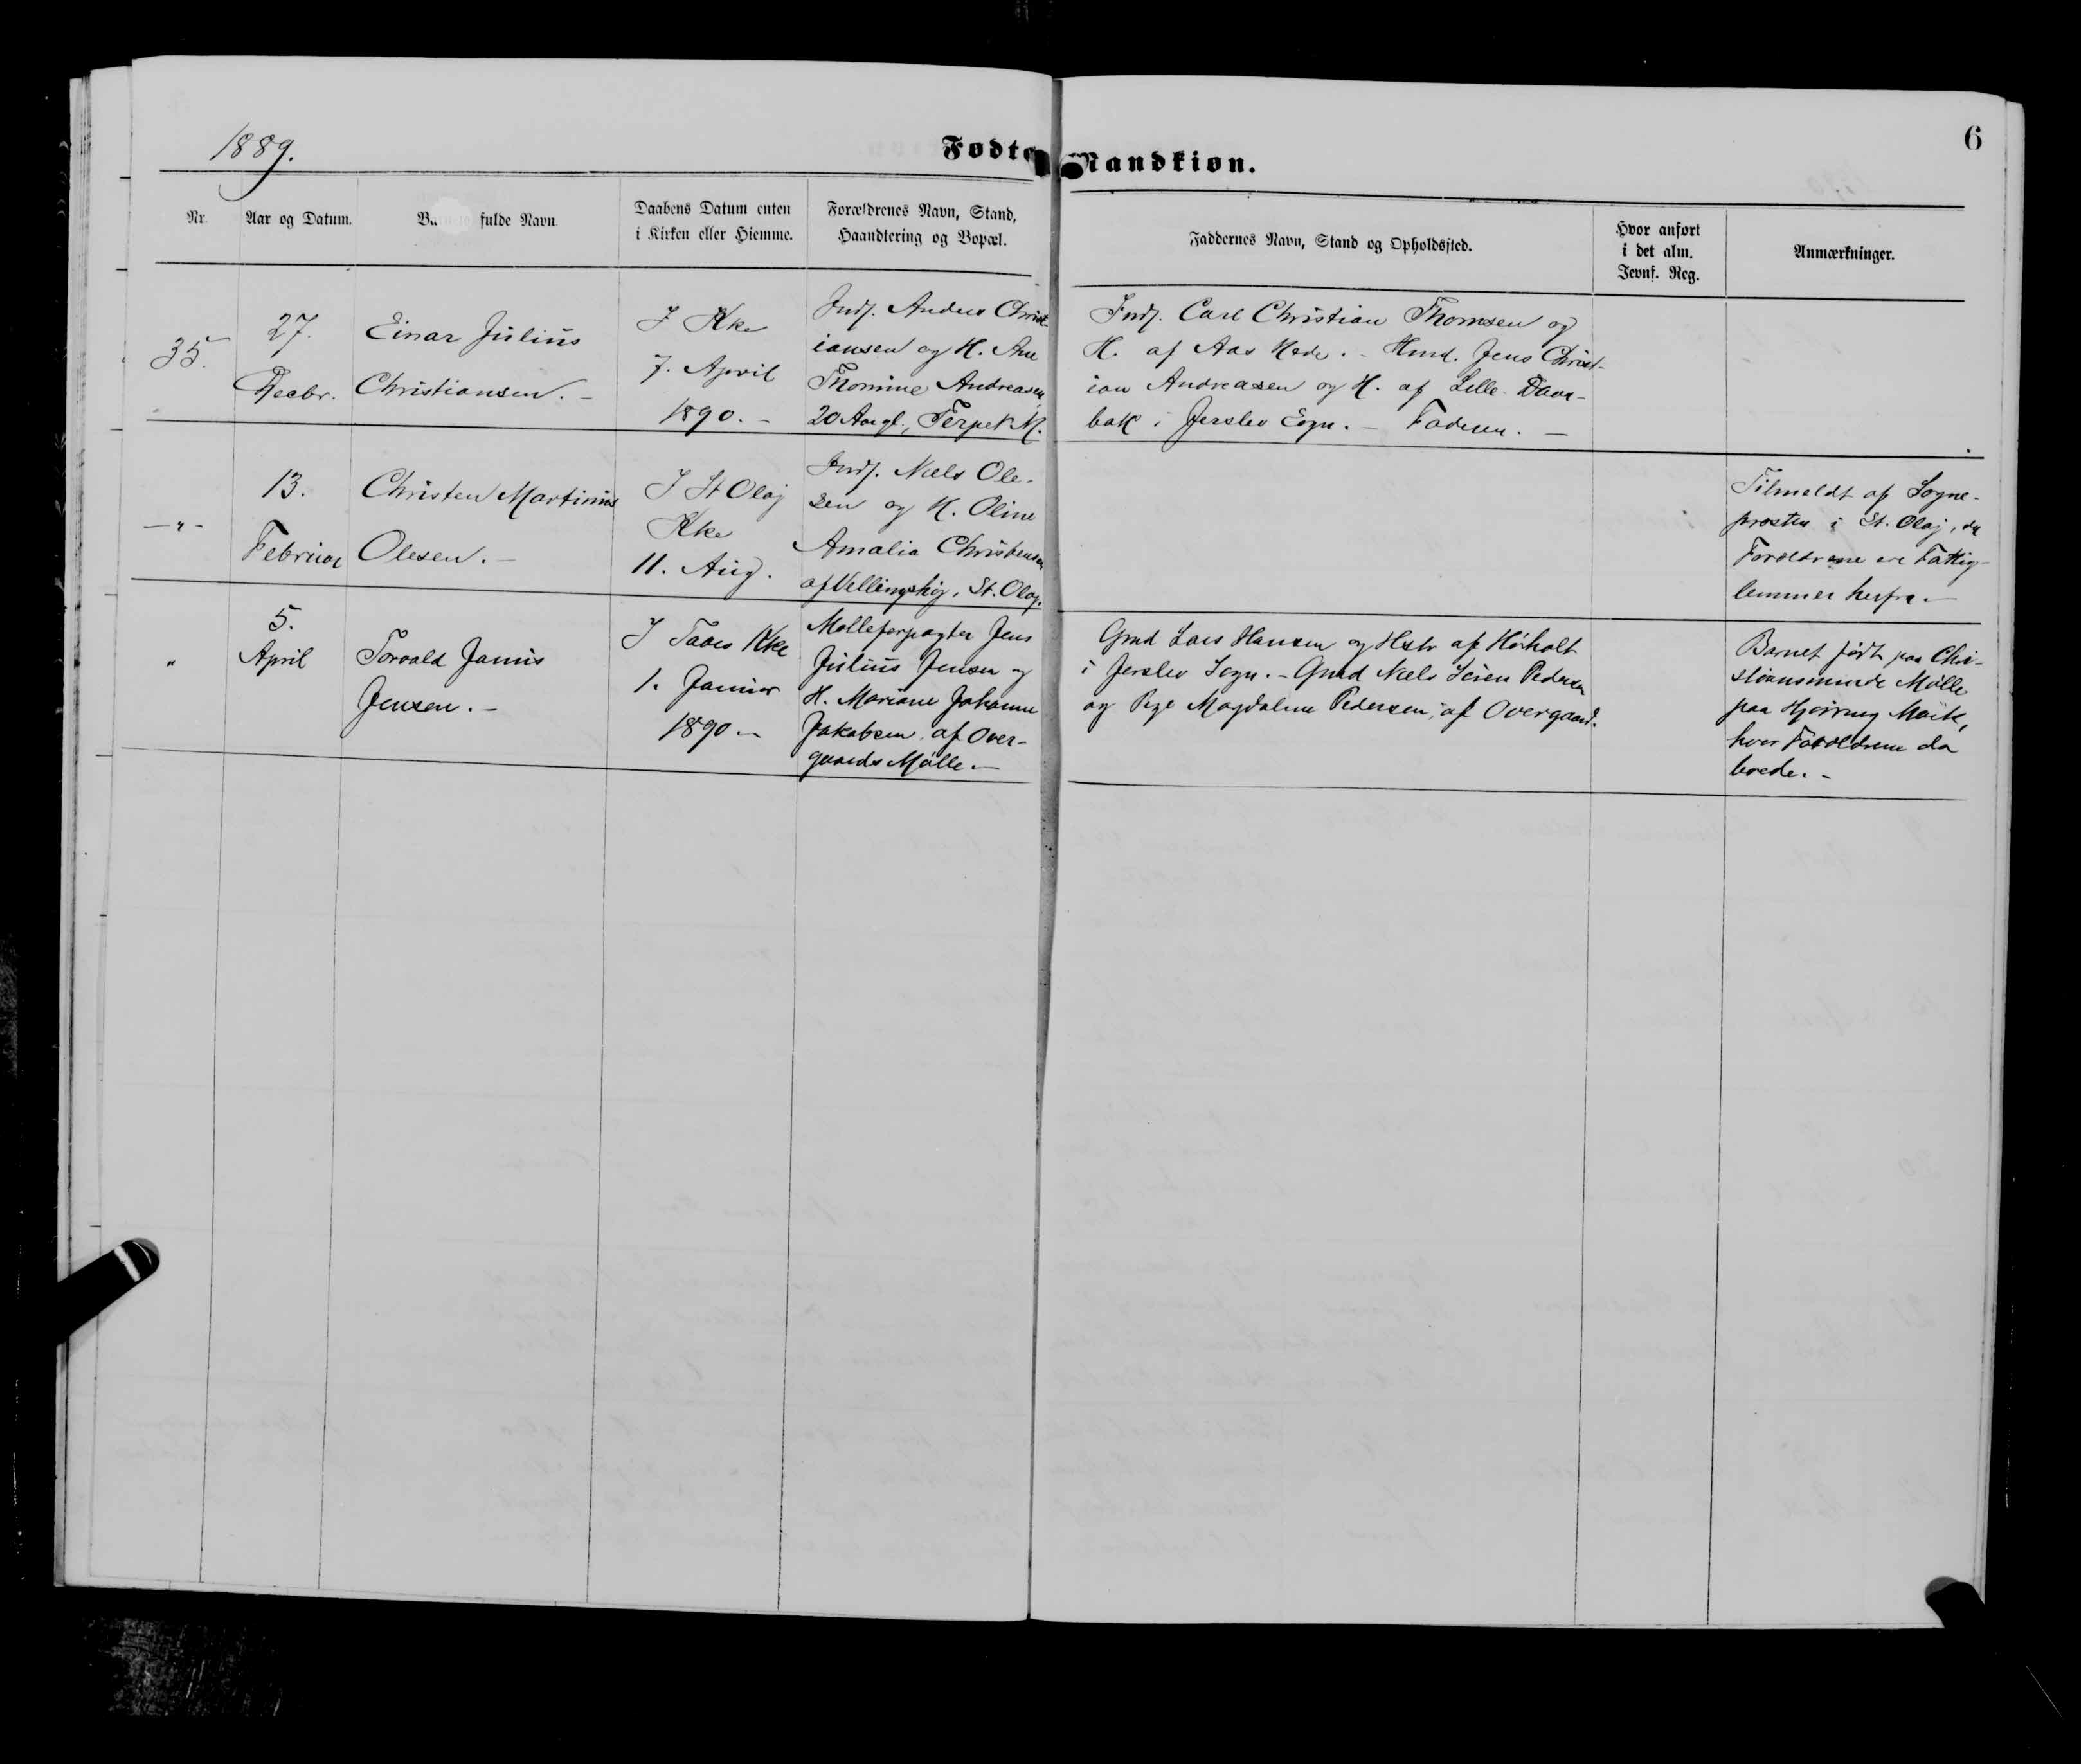 1889.
Fødte Mandkiøn.
6
Nr.
Aar og Datum.
fulde Navn
Daabens Datum enten
i Kirken eller Hiemme.
Forældrenes Navn, Stand,
Haandtering og Bopæl.
Faddernes Navn, Stand og Opholdssted.
Hvor anført
i det alm.
Jevnf. Reg.
Anmærkninger.
35.
27.
Decbr.
Einar Julius
Christiansen. -
I Kke
7. April
1890. -
Inds. Anders Christ-
iansen og H. Ane
Thomine Andreasen,
20 Aargl., Terpet M.
Inds. Carl Christian Thomsen og
H. af Aas Hede. - Hmd. Jens Christ-
ian Andreasen og H. af Lille Daar-
bak i Jerslev Sogn. - Faderen. -
- " -
13.
Februar
Christen Martinus
Olesen. -
I St Olaj
Kke
11. Aug.
Inds. Niels Ole-
sen og H. Oline
Amalia Christensen
af Vellingshøj, St. Olaj.
Tilmeldt af Sogne-
præsten i St. Olaj, da
Forældrene ere Fattig-
lemmer herfra. -
"
5.
April
Torvald Janus
Jensen. -
I Taars Kke
1. Januar
1890 -
Mølleforpagter Jens
Julius Jensen og
H. Mariane Johanne
Jakobsen af Over-
gaards Mølle. -
Gmd Lars Hansen og Hstr af Hørholt
i Jerslev Sogn. - Gmd Niels Søren Pedersen
og Pige Magdalene Pedersen, af Overgaard.
Barnet født paa Chri-
stiansminde Mølle
paa Hjørring Mark,
hvor Forældrene da
boede. -